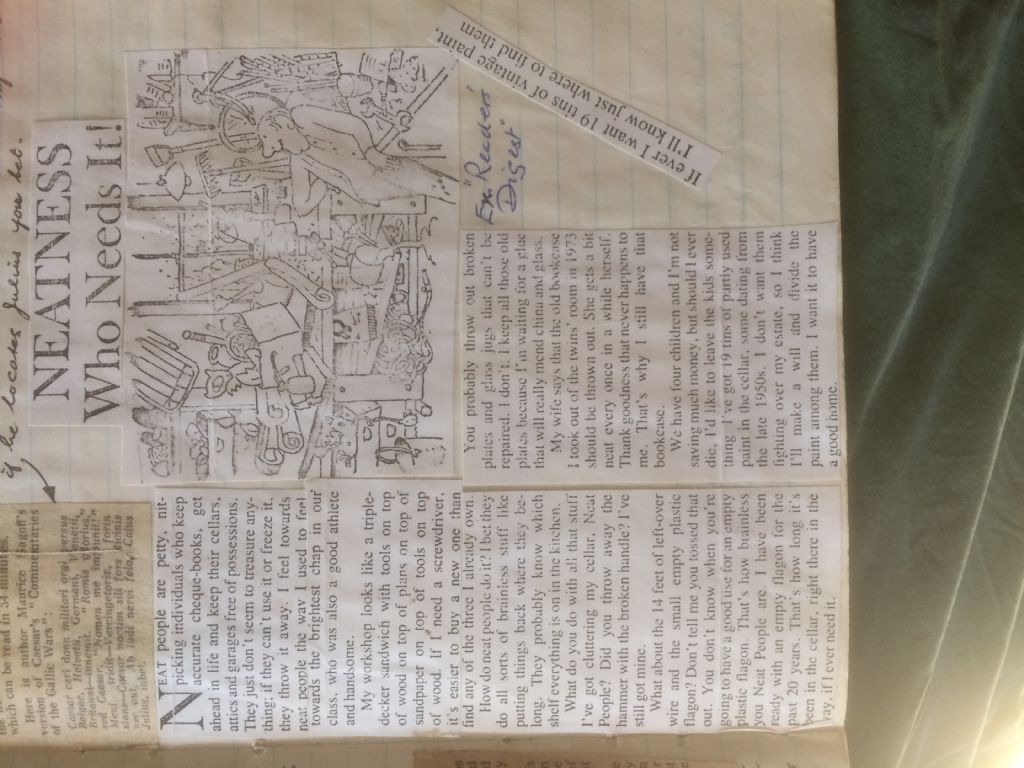 which can be read in 34 minutes.
Here is author Maurice Sagoff's
version of Caesar's "Commentaries
of the Gallic Wars":
if he becomes Julius you bet.
NEATNESS
Who Needs It!
NEAT people are petty, nit-
picking individuals who keep
accurate cheque-books, get
ahead in life and keep their cellars,
attics and garages free of possessions.
They just don't seem to treasure any-
thing; if they can't use it or freeze it,
they throw it away. I feel towards
neat people the way I used to feel
towards the brightest chap in our
class, who was also a good athlete
and handsome.
My workshop looks like a triple-
decker sandwich with tools on top
of wood on top of plans on top of
sandpaper on top of tools on top
of wood. If I need a screwdriver,
it's easier to buy a new one than
find any of the three I already own.
How do neat people do it? I bet they
do all sorts of brainless stuff like
putting things back where they be-
long. They probably know which
shelf everything is on in the kitchen.
What do you do with all that stuff
I've got cluttering my cellar, Neat
People? Did you throw away the
hammer with the broken handle? I've
still got mine.
What about the 14 feet of left-over
wire and the small empty plastic
flagon? Don't tell me you tossed that
out. You don't know when you're
going to have a good use for an empty
plastic flagon. That's how brainless
you Neat People are. I have been
ready with an empty flagon for the
past 20 years. That's how long it's
been in the cellar, right there in the
way, if I ever need it.
You probably throw out broken
plates and glass jugs that can't be
repaired. I don't. I keep all those old
plates because I'm waiting for a glue
that will really mend china and glass.
My wife says that the old bookcase
I took out of the twins' room in 1973
should be thrown out. She gets a bit
neat every once in a while herself.
Thank goodness that never happens to
me. That's why I still have that
bookcase.
We have four children and I'm not
saving much money, but should I ever
die, I'd like to leave the kids some-
thing. I've got 19 tins of partly used
paint in the cellar, some dating from
the late 1950s. I don't want them
fighting over my estate, so I think
I'll make a will and divide the
paint among them. I want it to have
a good home.
"Readers
Digest"
If ever I want 19 tins of vintage paint,
I'll know just where to find them